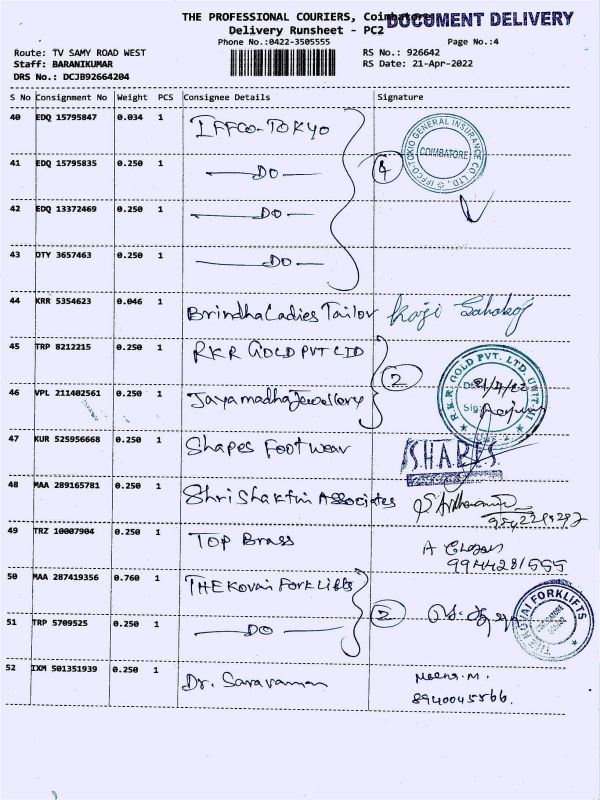 THE PROFESSIONAL COURIERS, Coimbatore
DOCUMENT DELIVERY
Delivery Runsheet - PC2
Phone No.:0422-3505555
Page No.:4
Route: TV SAMY ROAD WEST
RS No.: 926642
Staff: BARANIKUMAR
RS Date: 21-Apr-2022
DRS No.: DCJB92664204
S No Consignment No Weight PCS Consignee Details Signature
40 EDQ 15795847 0.034 1 IFFCO-TOKYO
IFFCO-TOKIO GENERAL INSURANCE CO LTD.
COIMBATORE
41 EDQ 15795835 0.250 1 —DO— 4
42 EDQ 13372469 0.250 1 —DO—
43 OTY 3657463 0.250 1 —DO—
44 KRR 5354623 0.046 1 Brindha Ladies Tailor
45 TRP 8212215 0.250 1 RKR GOLD PVT LTD
R.K.R. GOLD PVT. LTD. UNIT-II
2
46 VPL 211402561 0.250 1 Jayamadha Jewellery
47 KUR 525956668 0.250 1 Shapes Footwear
48 MAA 289165781 0.250 1 Shri Shakthi Associates
49 TRZ 10007904 0.250 1 TOP Brass
9944281555
50 MAA 287419356 0.760 1 THE Kovai Forklifts
THE KOVAI FORKLIFTS
2
51 TRP 5709525 0.250 1 —DO—
52 IXM 501351939 0.250 1 Dr. Saravanan
Meena.M.
8940045566.